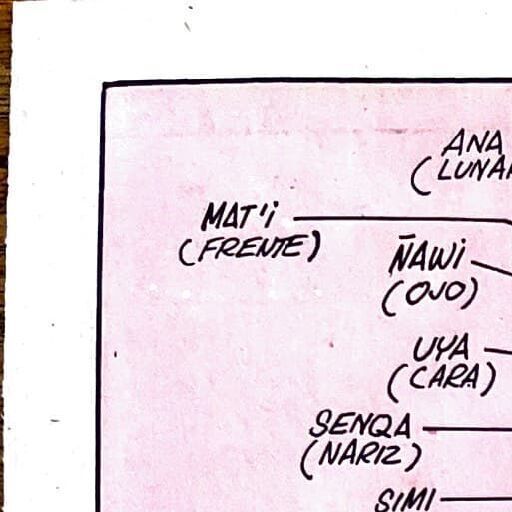 ANA
(LUNAR
MAT'i
(FRENTE)
ÑAWi
(OJO)
UYA
(CARA)
SENQA
(NARIZ)
SIMI